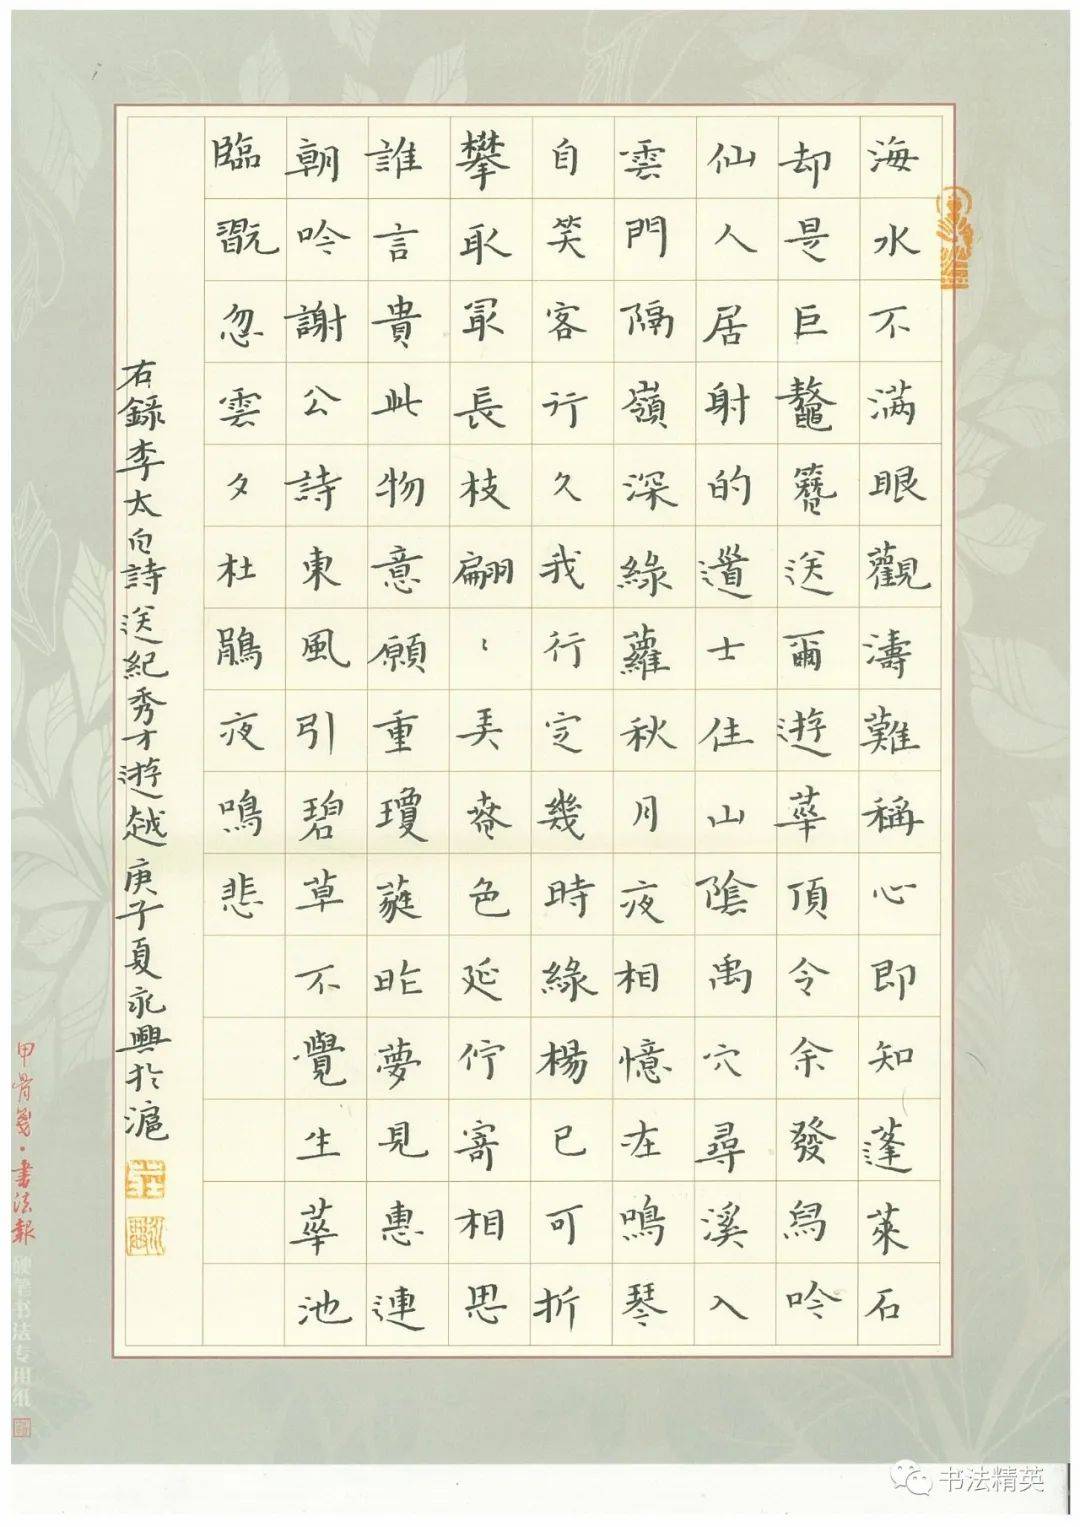 海水不满眼觀濤難稱心即知蓬萊石
却是巨鼇簪送爾遊華頂令余發舄吟
仙人居射的道士住山陰禹穴尋溪入
雲門隔嶺深綠蘿秋月夜相憶在鳴琴
自笑客行久我行定幾時綠楊已可折
攀取最長枝翩〻弄春色延佇寄相思
誰言貴此物意願重瓊蕤昨夢見惠連
朝吟謝公詩東風引碧草不覺生華池
臨翫忽雲夕杜鵑夜鳴悲
右錄李太白詩送紀秀才遊越庚子夏永興於滬
甲骨箋·書法報 硬笔书法专用纸
书法精英